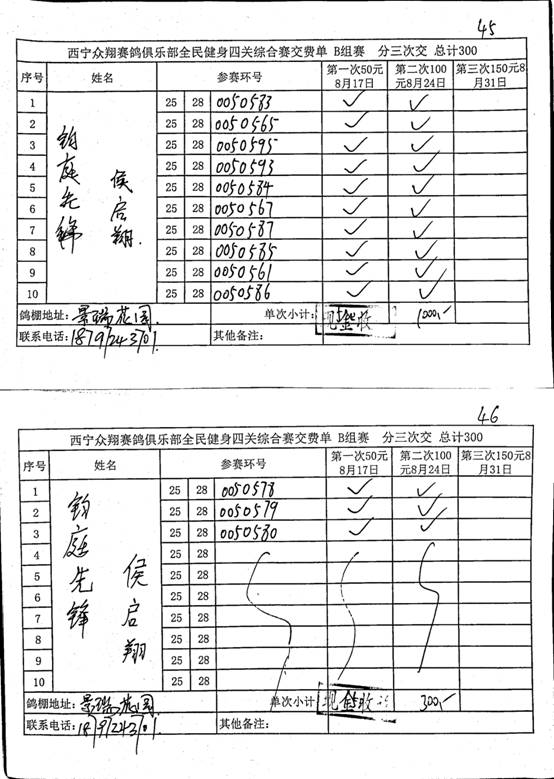 45
西宁众翔赛鸽俱乐部全民健身四关综合赛交费单 B组赛 分三次交 总计300
序号 姓名 参赛环号 第一次50元8月17日 第二次100元8月24日 第三次150元8月31日
钧庭先锋 侯启翔
1 25 28 0050583 ✓ ✓
2 25 28 0050565 ✓ ✓
3 25 28 0050595 ✓ ✓
4 25 28 0050593 ✓ ✓
5 25 28 0050584 ✓ ✓
6 25 28 0050567 ✓ ✓
7 25 28 0050587 ✓ ✓
8 25 28 0050585 ✓ ✓
9 25 28 0050561 ✓ ✓
10 25 28 0050586 ✓ ✓
鸽棚地址: 景瑞花园. 单次小计: 现金收 1000,-
联系电话: 18797243701. 其他备注:
46
西宁众翔赛鸽俱乐部全民健身四关综合赛交费单 B组赛 分三次交 总计300
序号 姓名 参赛环号 第一次50元8月17日 第二次100元8月24日 第三次150元8月31日
钧庭先锋 侯启翔
1 25 28 0050578 ✓ ✓
2 25 28 0050579 ✓ ✓
3 25 28 0050580 ✓ ✓
4 25 28
5 25 28
6 25 28
7 25 28
8 25 28
9 25 28
10 25 28
鸽棚地址: 景瑞花园. 单次小计 现金收 300,-
联系电话: 18797243701. 其他备注: